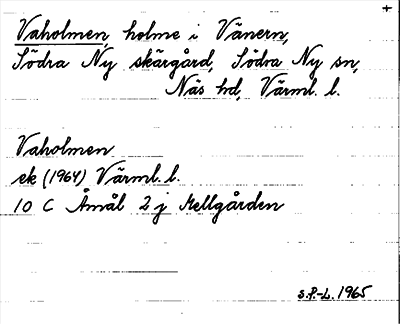 +
Vaholmen, holme i Vänern,
Södra Ny skärgård, Södra Ny sn,
Näs hd, Värml. l.
Vaholmen
ek (1964) Värml. l.
10 C Åmål 2 j Mellgården
S.P.-L. 1965